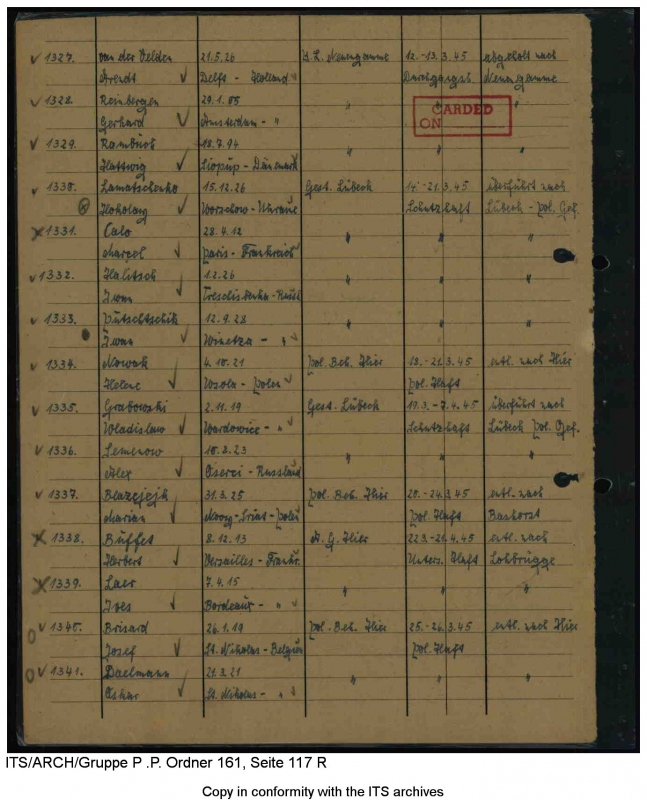 1327. van der Velden 21.5.26 K.L. Neuengamme 12.-13.3.45 abgeholt nach
Arendt Delft - Holland Durchgangsh. Neuengamme
1328. Reinbergen 29.1.05 " " "
Gerhard Amsterdam - "
CARDED
ON
1329. 18.7.94 " " "
Hattwig - Dänemark
1330. Lamatschenko 15.12.26 Gest. Lübeck 14.-21.3.45 überführt nach
Worschow - Ukraine Schutzhaft Lübeck - pol. Gef.
1331. Calo 28.4.12 " " "
Marcel Paris - Frankreich
1332. Halitsch 1.2.26 " " "
Iwan - Russl
1333. 12.9.28 " " "
Iwan Winetza - "
1334. Nowak 4.10.21 pol. Beh. Hier 18.-21.3.45 entl. nach Hier
Helene - Polen pol. Haft
1335. Grabowski 2.11.19 Gest. Lübeck 17.3.-7.4.45 überführt nach
Wladislaw Wardowice - " Schutzhaft Lübeck pol. Gef.
1336. Semenow 10.8.23 " " "
Alex - Russland
1337. Blazejzik 31.3.25 pol. Beh. Hier 20.-24.3.45 entl. nach
Marian - Polen pol. Haft
1338. Buffet 8.12.13 A.G. Hier 22.3.-21.4.45 entl. nach
Herbert Versailles - Frankr. Unters. Haft Lohbrügge
1339. Laer 7.4.15 " " "
Ives Bordeaux - "
1340. Brisard 26.1.19 pol. Beh. Hier 25.-26.3.45 entl. nach Hier
Josef St. Nikolas - Belgien pol. Haft
1341. Daelmann 21.3.21 " " "
Oskar St. Nikolas - "
ITS/ARCH/Gruppe P .P. Ordner 161, Seite 117 R
Copy in conformity with the ITS archives